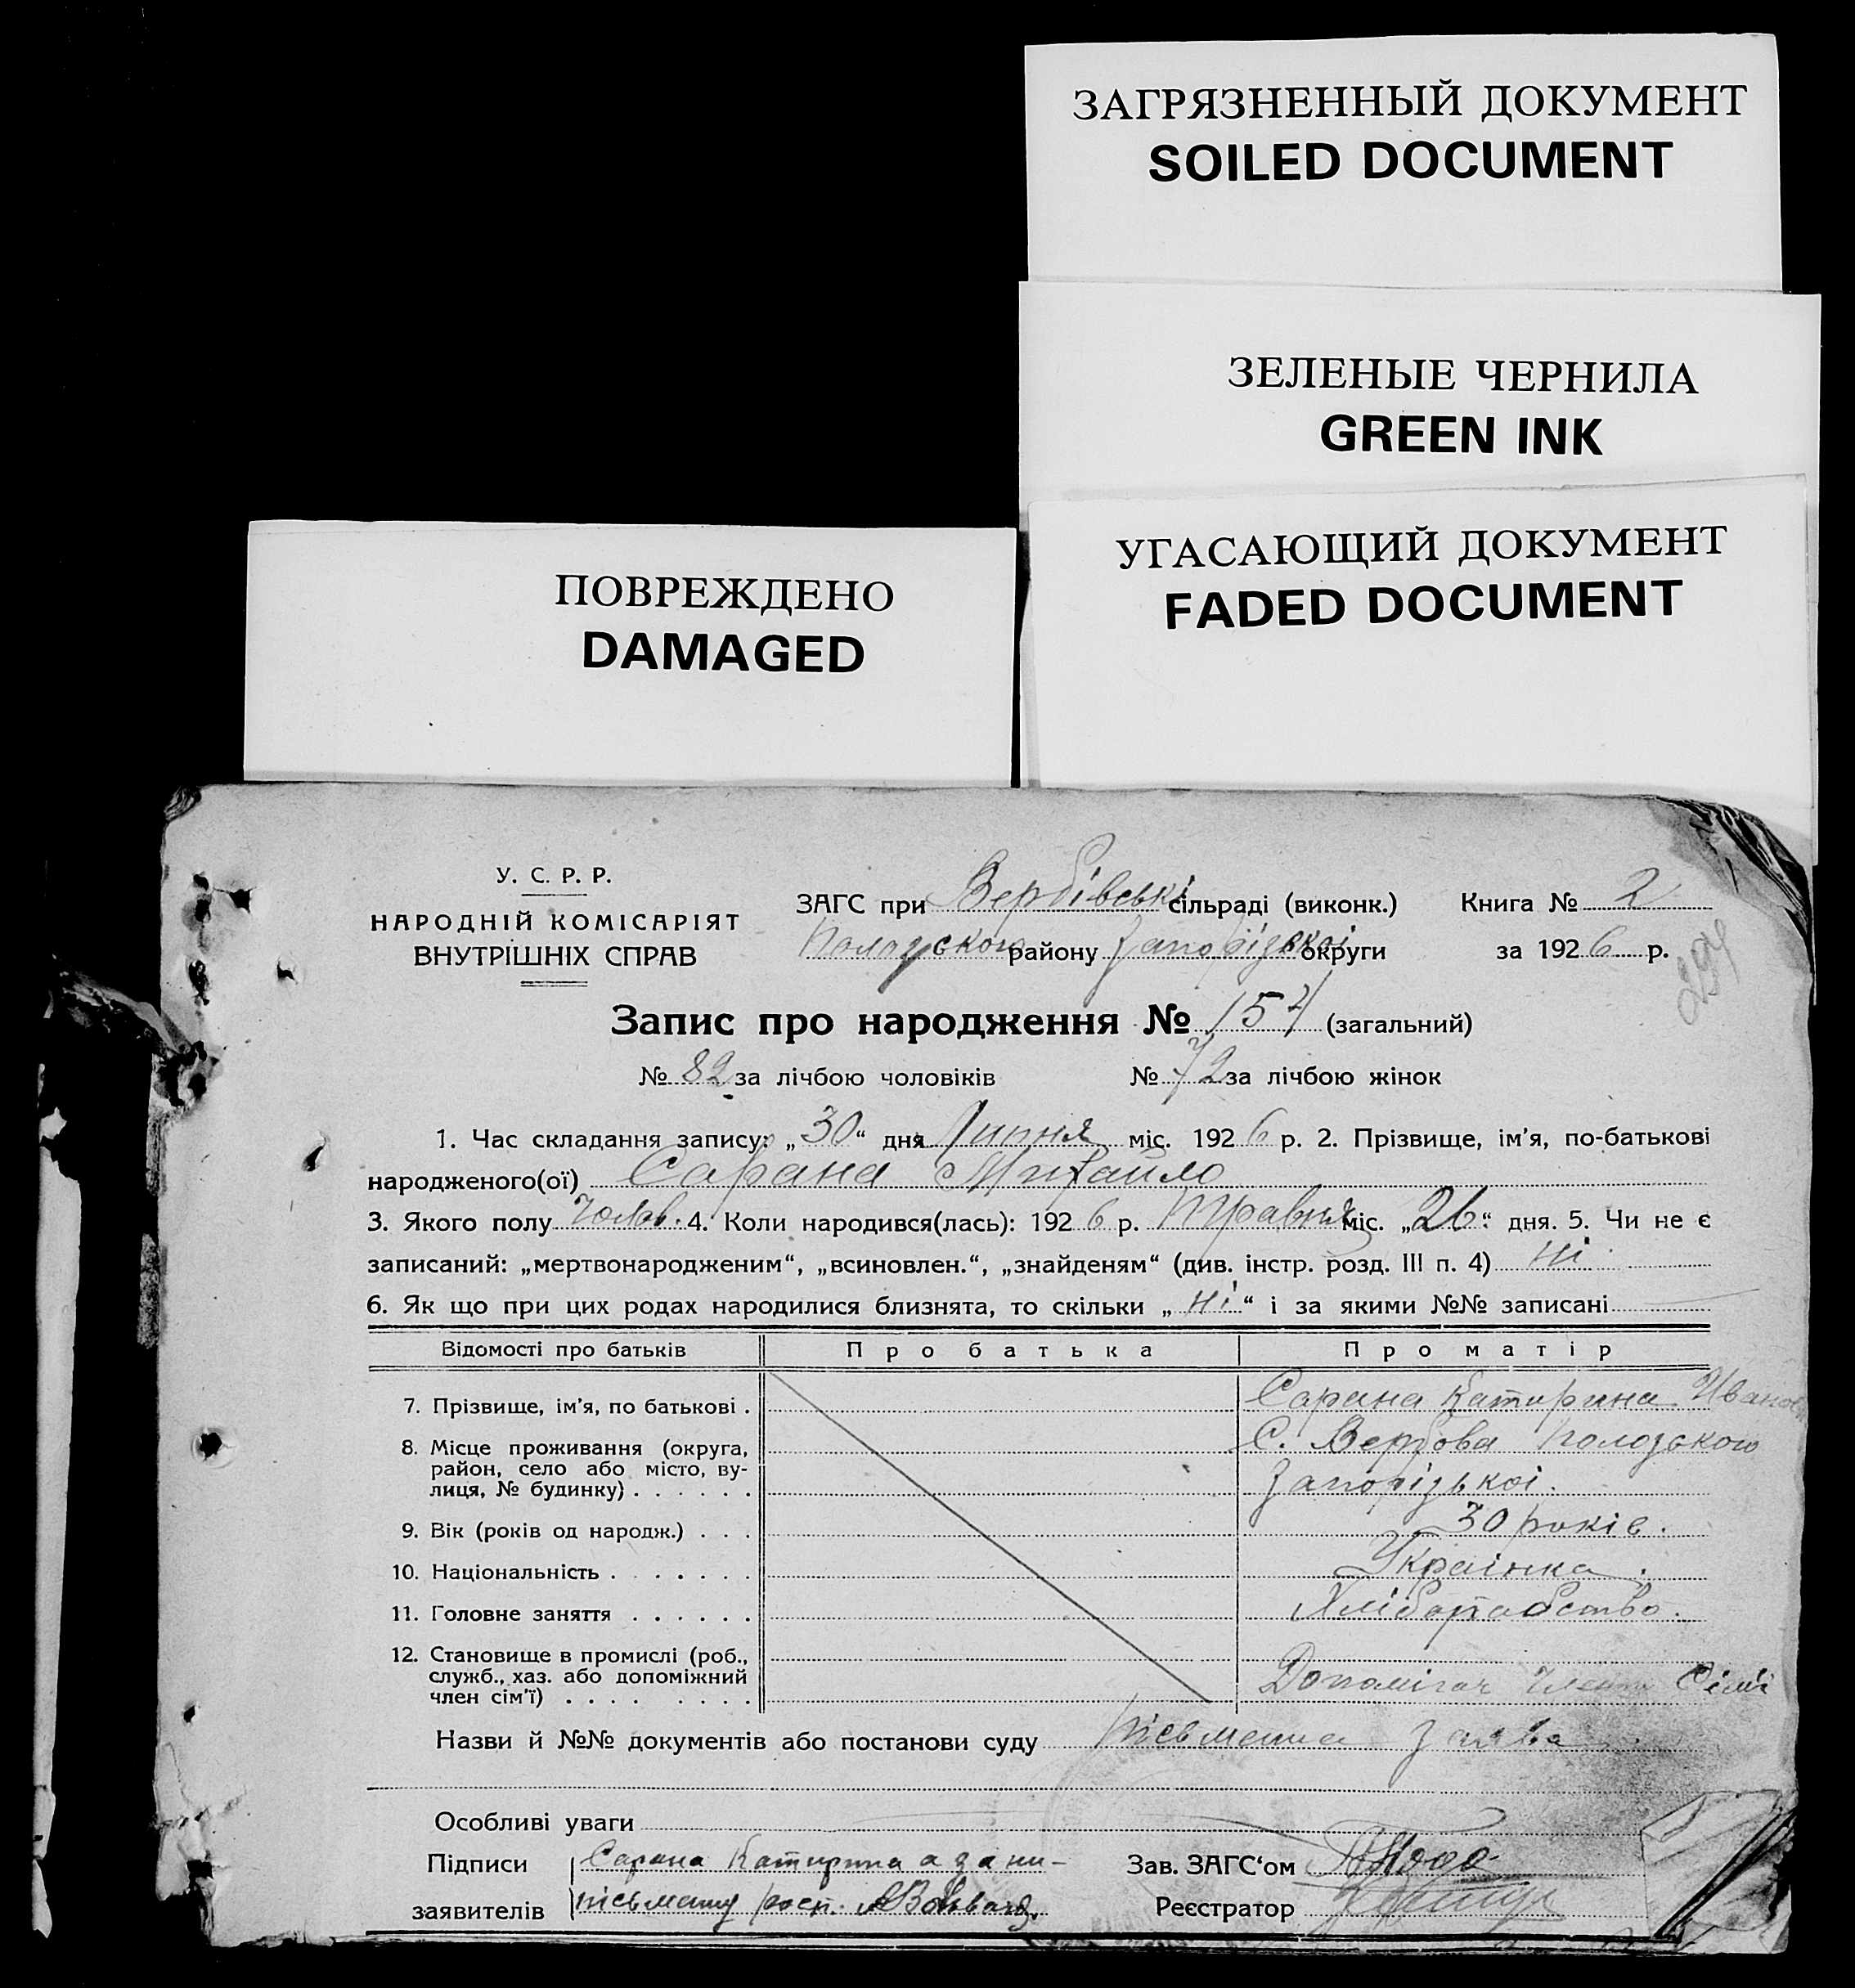 ЗАГРЯЗНЕННЫЙ ДОКУМЕНТ
SOILED DOCUMENT
ЗЕЛЕНЫЕ ЧЕРНИЛА
GREEN INK
УГАСАЮЩИЙ ДОКУМЕНТ
FADED DOCUMENT
ПОВРЕЖДЕНО
DAMAGED
У. С. Р. Р.
НАРОДНІЙ КОМІСАРІЯТ
ВНУТРІШНІХ СПРАВ
ЗАГС при Вербівські сільраді (виконк.) Книга № 2
Пологського району Запорізької округи за 1926 р.
Запис про народження № 154 (загальний)
№ 82 за лічбою чоловіків № 72 за лічбою жінок
1. Час складання запису: „30“ дня Липня міс. 1926 р. 2. Прізвище, ім'я, по-батькові
народженого(ої) Сарана Михайло
3. Якого полу Чолов. 4. Коли народився(лась): 1926 р. Травня міс. „26“ дня. 5. Чи не є
записаний: „мертвонародженим“, „всиновлен.“, „знайденям“ (див. інстр. розд. III п. 4) Ні
6. Як що при цих родах народилися близнята, то скільки „Ні“ і за якими №№ записані
Відомості про батьків Про батька Про матір
7. Прізвище, ім'я, по батькові . Сарана Катирина Иванов
8. Місце проживання (округа, С. Вербова Пологського
район, село або місто, ву-
лиця, № будинку) . . . . . . Запорізької.
9. Вік (років од народж.) . . . 30 років.
10. Національність . . . . . . . Українка.
11. Головне заняття . . . . . . Хліборобство.
12. Становище в промислі (роб.,
служб., хаз. або допоміжний Допомігач Член Сімї
член сім'ї) . . . . . . . .
Назви й №№ документів або постанови суду Письменна заява
Особливі уваги
Підписи Сарана Катирина а за ни- Зав. ЗАГС'ом
заявителів письмену росп. Реєстратор